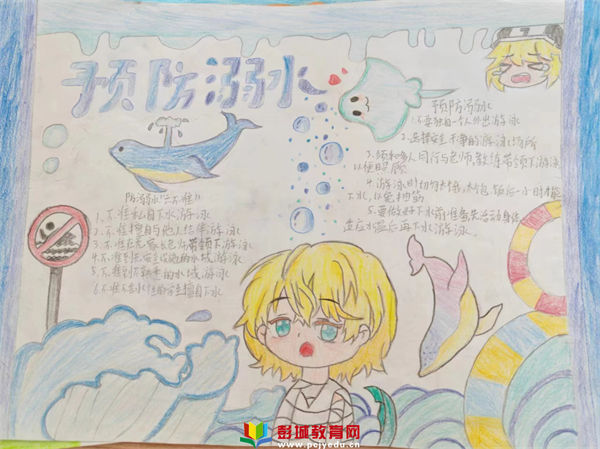 预防溺水
防溺水"六不准"
1、不准私自下水游泳
2、不准擅自与他人结伴游泳
3、不准在无家长老师带领下游泳
4、不准到无安全设施的水域游泳
5、不准到不熟悉的水域游泳
6、不准不会水性的学生擅自下水
预防溺水
1、不要独自一个人外出游泳
2、选择安全干净的游泳场所
3、须和多人同行与老师、教练带领下游泳
以便照顾
4、游泳时切勿太饿、太饱、饭后一小时才能
下水,以免抽筋
5、要做好下水前准备先活动身体
适应水温后再下水游泳
彭城教育网
www.pcjyedu.cn